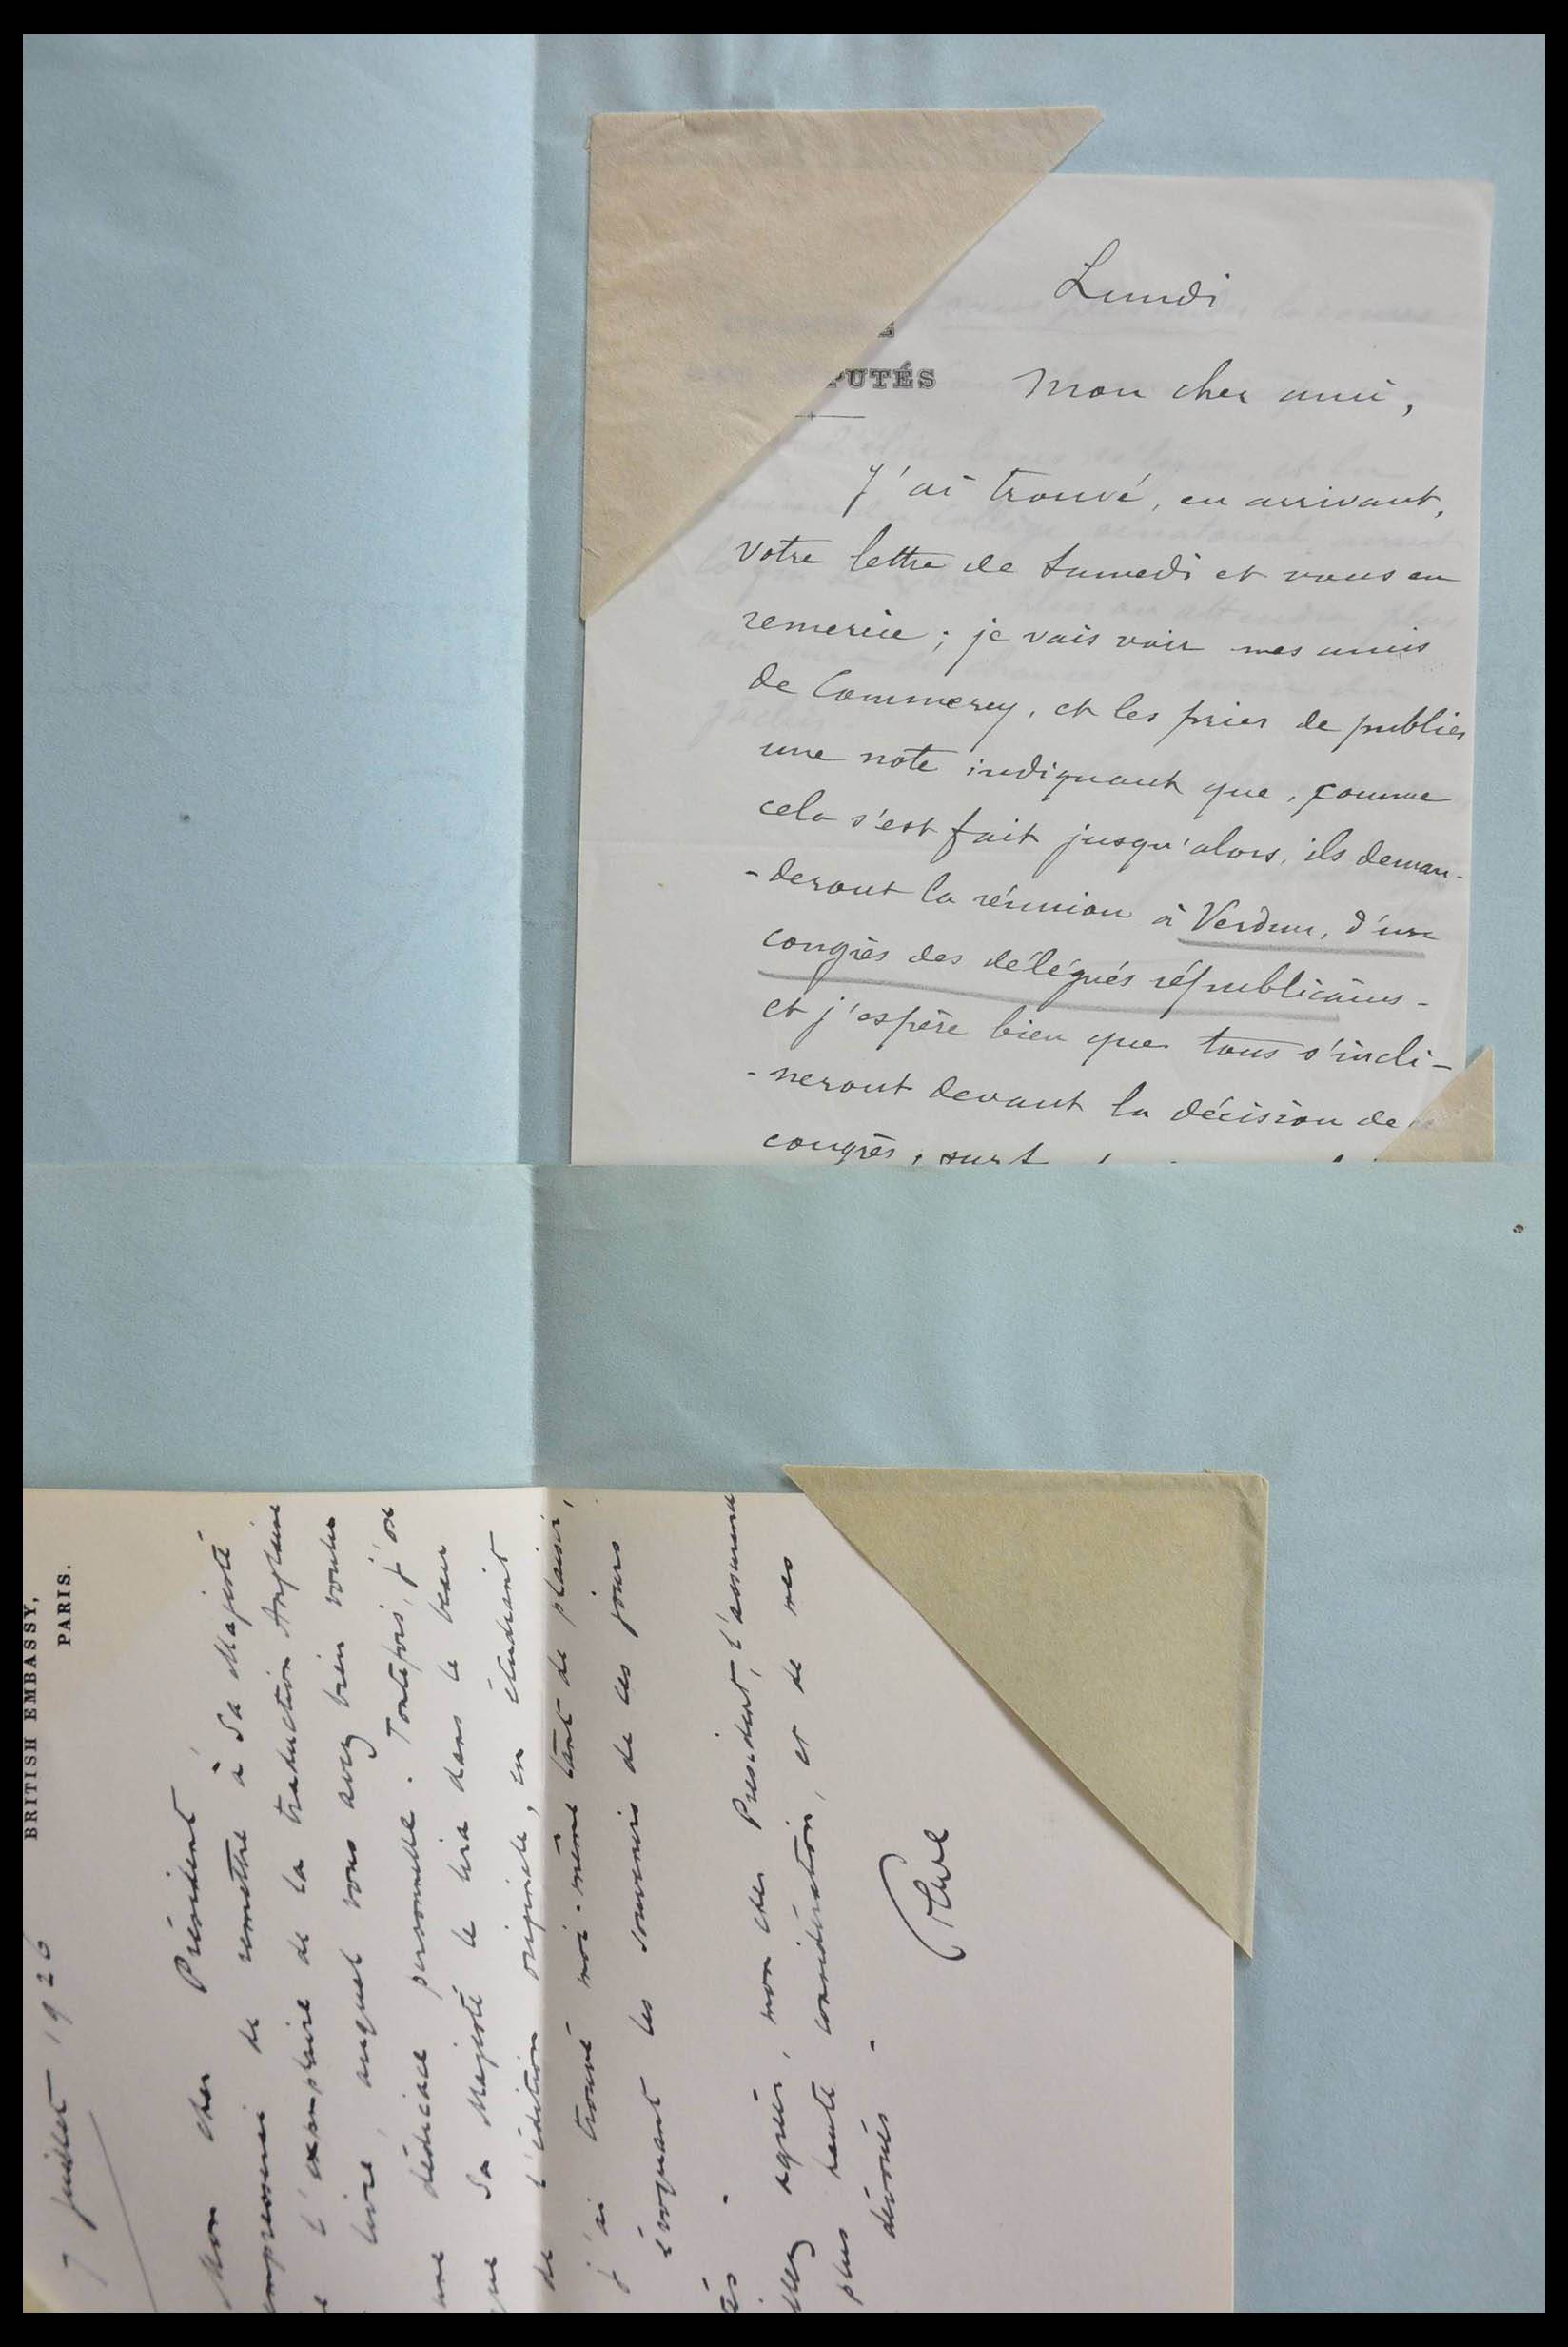 Lundi
PUTÉS
Mon cher ami,
J'ai trouvé, en arrivant,
votre lettre de Samedi et vous en
remercie ; je vais voir mes amis
de Commercy, et les prier de publier
une note indiquant que, comme
cela s'est fait jusqu'alors, ils deman-
-deront la réunion à Verdun, d'un
congrès des délégués républicains -
et j'espère bien que tous s'incli-
-neront devant la décision de
congrès,
BRITISH EMBASSY,
PARIS.
7 juillet 1926
Mon cher Président,
empresserai de remettre à Sa Majesté
l'exemplaire de la traduction Anglaise
livre, auquel vous avez bien voulu
une dédicace personnelle. Toutefois, j'ose
que Sa Majesté le lira dans le beau
de l'édition originale, en étudiant
j'ai trouvé moi-même tant de plaisir,
évoquant les souvenirs de ces jours
agréer, mon cher Président, l'assurance
plus haute considération, et de mes
dévoués.
Crewe